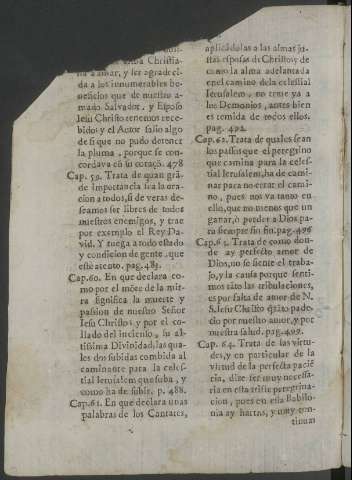 alma Christia-
na a amar, y ser agradeci-
da a los innumerables be-
neficios que de nuestro a-
mado Salvador, y Esposo
Iesu Christo tenemos rece-
bidos y el Autor salio algo
de si que no pudo detener
la pluma, porque se con-
cordava cõ su coraçõ. 478
Cap. 59. Trata de quan grã-
de importancia sea la ora-
cion a todos, si de veras de-
seamos ser libres de todos
nuestros enemigos, y trae
por exemplo el Rey Da-
vid. Y ruega a todo estado
y condicion de gente, que
esté atento. pag. 483.
Cap. 60. En que declara co-
mo por el môte de la mir-
ra significa la muerte y
passion de nuestro Señor
Iesu Christo, y por el co-
llado del incienso, su al-
tissima Divinidad, las qua-
les dos subidas combida al
caminante para la celes-
tial Ierusalem que suba, y
como ha de subir. p. 488.
Cap. 61. En que declara unas
palabras de los Cantares,
aplicãdolas a las almas ju-
stas esposas de Christo, y de
como la alma adelantada
en el camino de la celestial
Ierusalem, no teme ya a
los Demonios, antes bien
es temida de todos ellos.
pag. 492.
Cap. 62. Trata de quales sean
los passos que el peregrino
que camina para la celes-
tial Ierusalem, ha de cami-
nar para no errar el cami-
no, pues nos va tanto en
ello, que no menos que un
ganar, ò perder a Dios pa-
ra siempre sin fin. pag. 496
Cap. 63. Trata de como don-
de ay perfecto amor de
Dios, no se siente el traba-
jo, y la causa porque senti-
mos tãto las tribulaciones,
es por falta de amor de N.
S. Iesu Christo quãto pade-
cio por nuestro amor, y por
nuestra salud. pag. 499.
Cap. 64. Trata de las virtu-
des, y en particular de la
virtud de la perfecta pacié
cia, dize ser muy necessa-
ria en esta triste peregrina-
cion, pues en esta Babilo-
nia ay hartas, y muy con-
tinuas